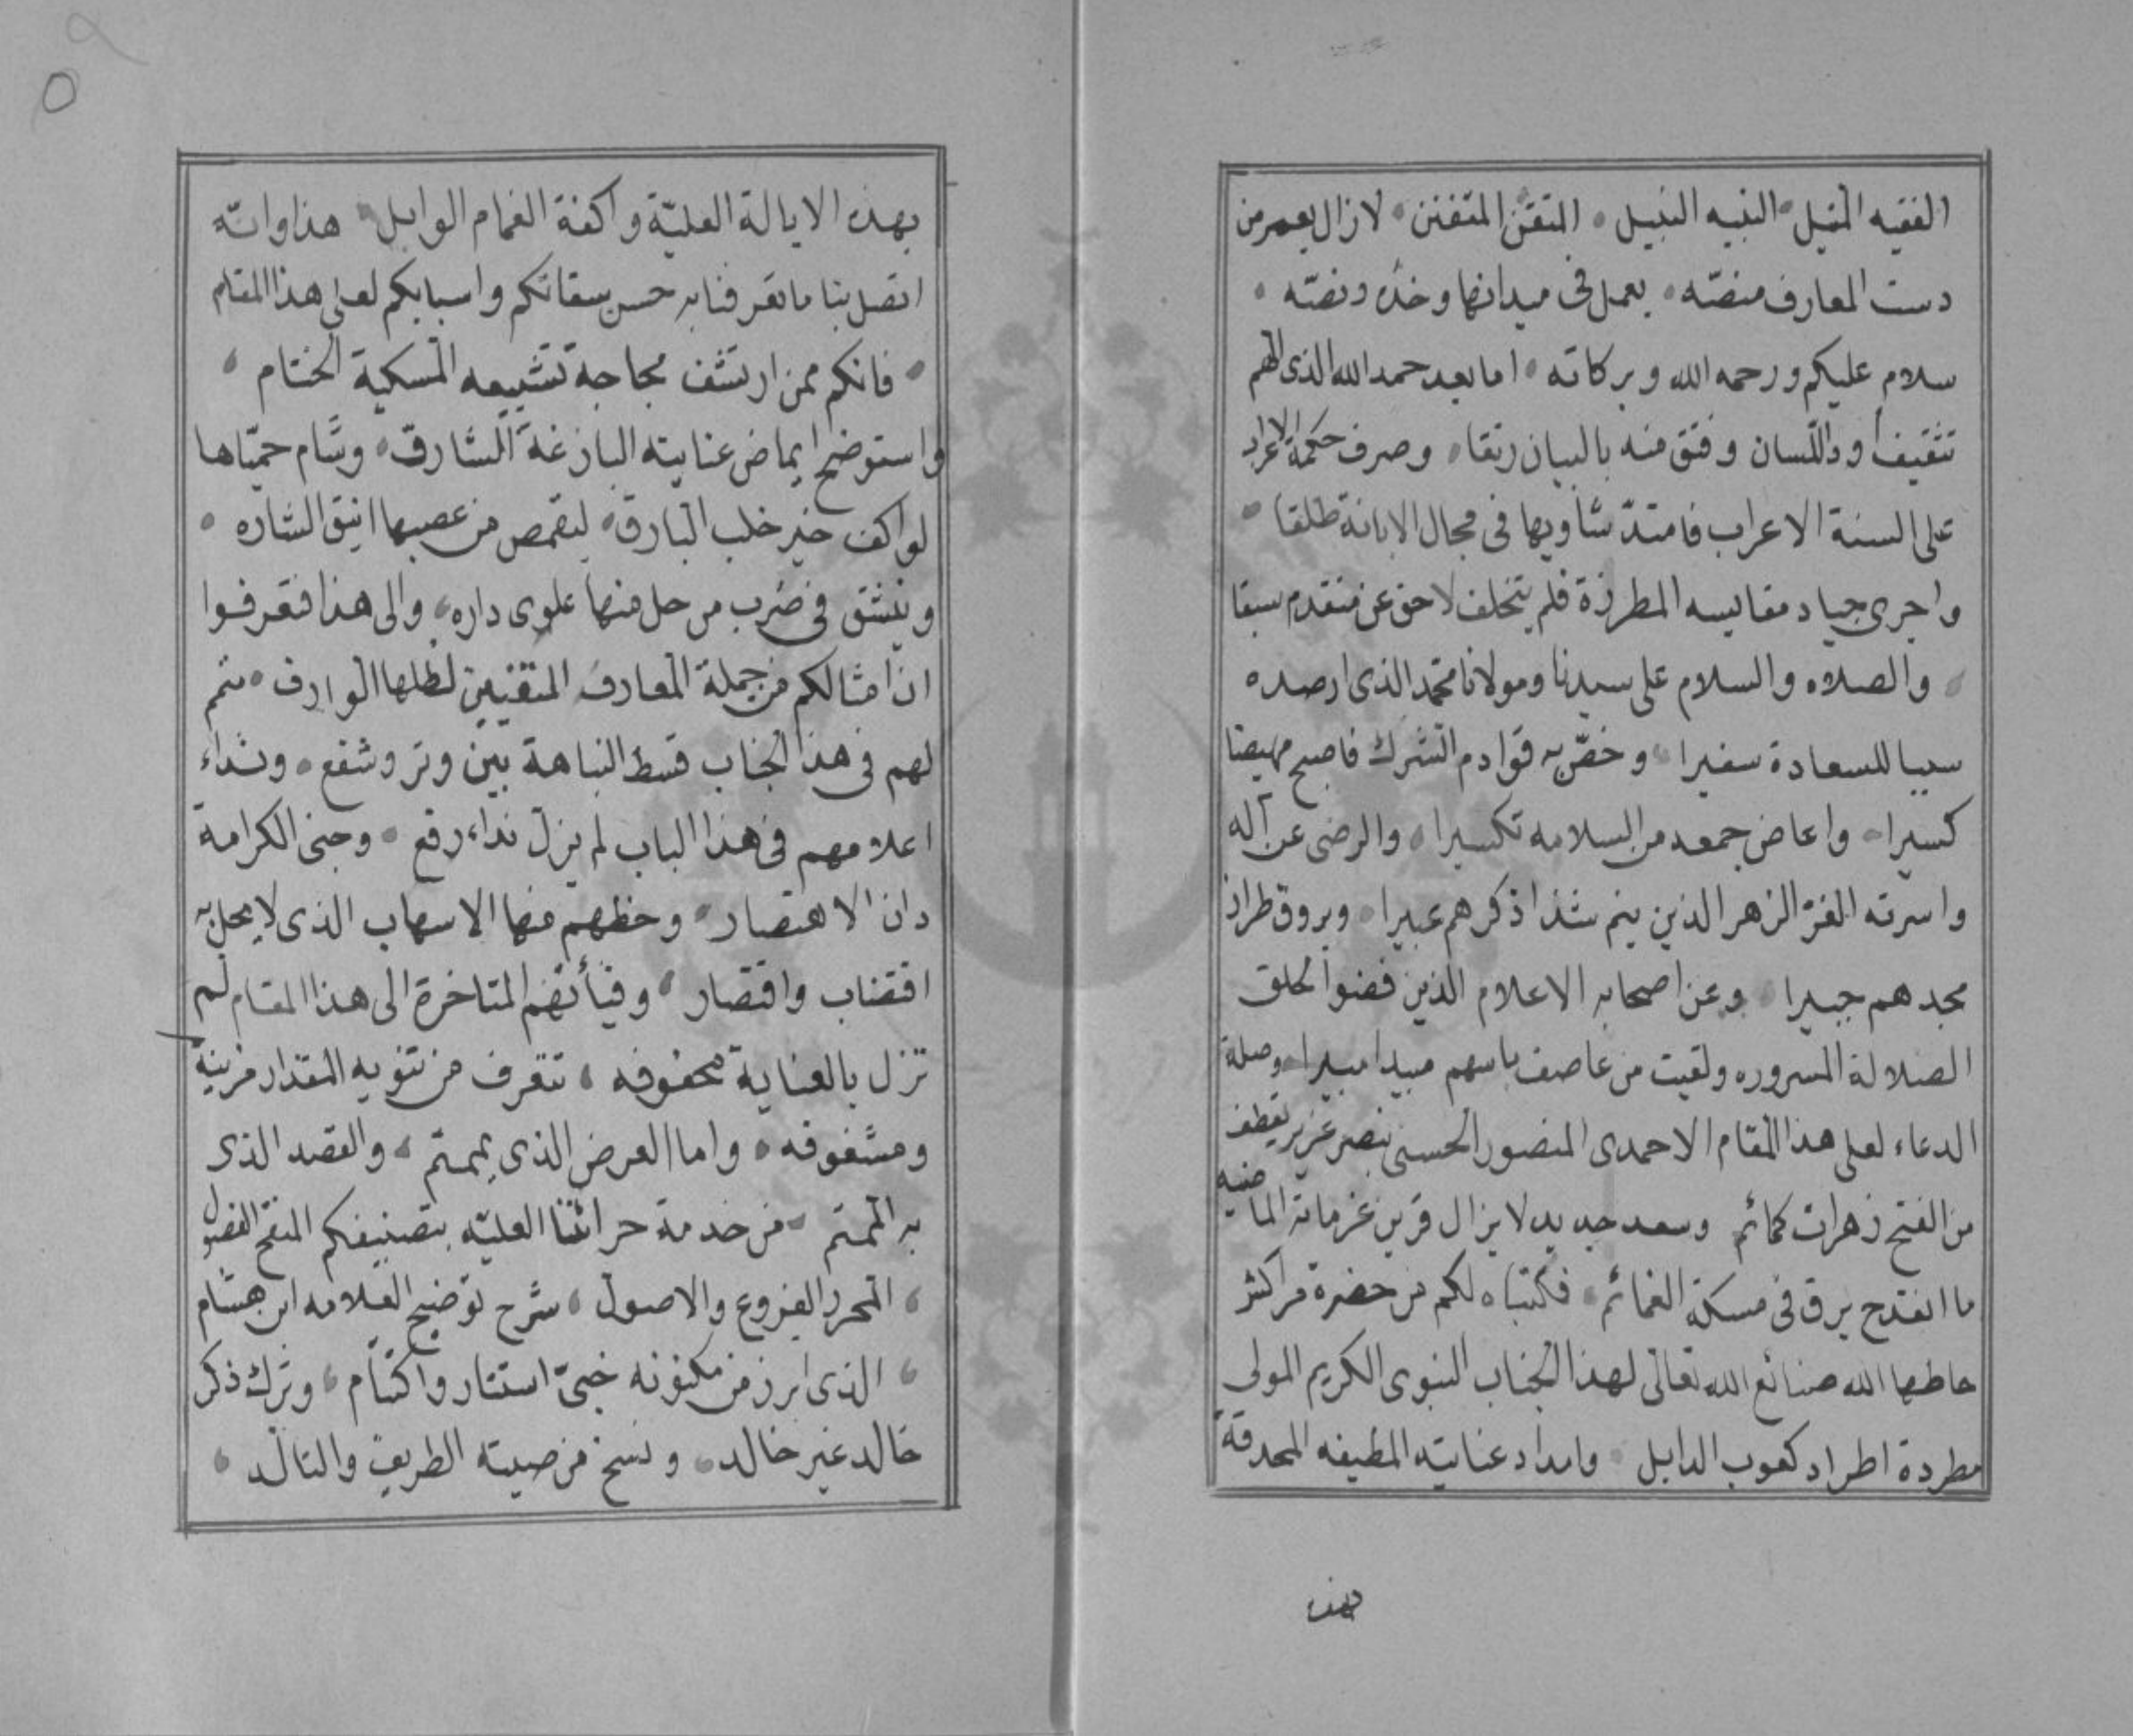 الفقيه المثيل النبيه النبيل • المتقن المتفنن • لا زال يعمر من
دست المعارف منصّه • يعمل فى ميدانها وخده ونصّه •
سلام عليكم ورحمه الله وبركاته • اما بعد حمد الله الذى الهم
تثقيف أود اللسان وفتق منه بالبيان رتقا • وصرف حكمة الاعراب
على السنة الاعراب فامتدّ شاويها فى مجال الابانة طلقا •
واجرى جياد مقاييسه المطرزة فلم يتخلف لاحق عن متقدم سبقا
• والصلاه والسلام على سيدنا ومولانا محمد الذى ارصده
سببا للسعادة سفيرا • وخصّ به قوادم الشرك فاصبح مهيضا
كسيرا • واعاض جمعه من السلامه تكسيرا • والرضى عن آله
واسرته الغرّ الزهر الذين ينم شذا ذكرهم عبيرا • ويروق طراز
مجدهم حبيرا • وعن اصحابه الاعلام الذين فضوا لحلق
الضلالة المسروره ولقيت من عاصف باسهم مبيدا مبيرا • وصلة
الدعاء لعلى هذا المقام الاحمدى المنصور الحسنى بنصر عزيز يقطف
من الفتح زهرات كمائم وسعد جديد لا يزال قرين عزماته الماضيه
ما انقدح برق فى مسكة الغمائم • فكتبناه لكم من حضرة مراكش
حاطها الله صنائع الله تعالى لهذا الجناب النبوى الكريم المولى
مطردة اطراد كعوب الدابل • وامداد عنايته المطيفه المحدقة
بهذه
بهذه الايالة العليّة واكفة الغمام الوابل • هذا وانّه
اتصل بنا ما تعرفنا به حسن سقاتكم واسبابكم لعلى هذا المقام
• فانكم ممن ارتشف مجاجة تشييعه المسكية الختام •
واستوضح ايماض عنايته البازغة المشارق • وشام حميّاها
لواكف خير خلب البارق • ليقمص من عصبها انيق الشاره •
وينشق فى ضرب من حل منها علوى داره • والى هذا فتعرفوا
ان امثالكم من جملة المعارف المتفيين لظلها الوارف • تتم
لهم فى هذا الجناب قسط النباهة بين وتر وشفع • ونداء
اعلامهم فى هذا الباب لم يزل نداء رفع • وجنى الكرامة
دان الاهتصار • وحظهم منها الاسهاب الذى لا يحل به
اقتضاب واقتصار • وفيأتهم المتاخرة الى هذا المقام لم
تزل بالعناية محفوفه • تتعرف من تنويه المقدار مزيّة
ومشفوفه • واما العرض الذى يممتم • والقصد الذى
به الممتم • من خدمة خزائننا العليّه بتصنيفكم المنقح الفصول
• المحرر الفروع والاصول • شرح توضيح العلامه ابن هشام
• الذى ابرز من مكنونه خبئ استتار واكتتام • وترك ذكر
خالد غير خالد • ونسخ من صيته الطريف والتالد •